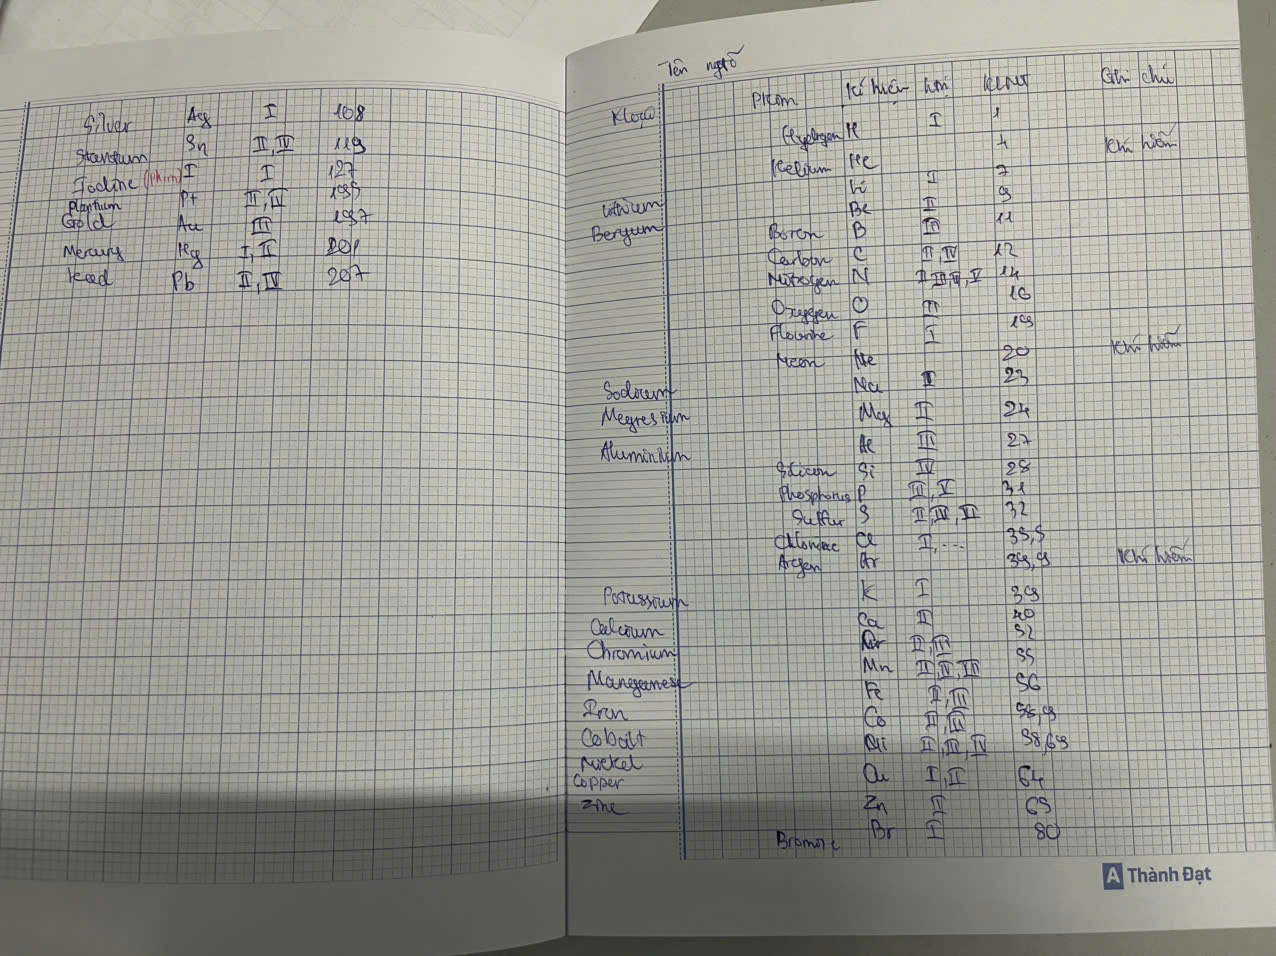 Silver Ag I 108
Stantium Sn II, IV 119
Iodine (Pkim) I I 127
Plantium Pt II, IV 195
Gold Au III 197
Mercury Hg I, II 201
Lead Pb II, IV 207
Tên ngtố
Kloại Pkim Kí hiệu htrị KLNT Ghi chú
Hydrogen H I 1
Helium He 4 Khí hiếm
Lithium Li I 7
Beryum Be II 9
Boron B III 11
Carbon C II, IV 12
Nitrogen N 14
Oxygen O II 16
Flourine F I 19
Neon Ne 20 Khí hiếm
Sodium Na I 23
Megnesium Mg II 24
Aluminium Al III 27
Silicon Si IV 28
Phosphorus P III, V 31
Sulfur S II, IV, VI 32
Cl I, ... 35,5
Argon Ar 39,9 Khí hiếm
Potassium K I 39
Calcium Ca II 40
Chromium Cr II, III 52
Manganese Mn 55
Iron Fe II, III 56
Cobalt Co II, III 58,9
Nickel Ni 58,69
Copper Cu I, II 64
Zinc Zn II 65
Bromine Br I 80
A Thành Đạt